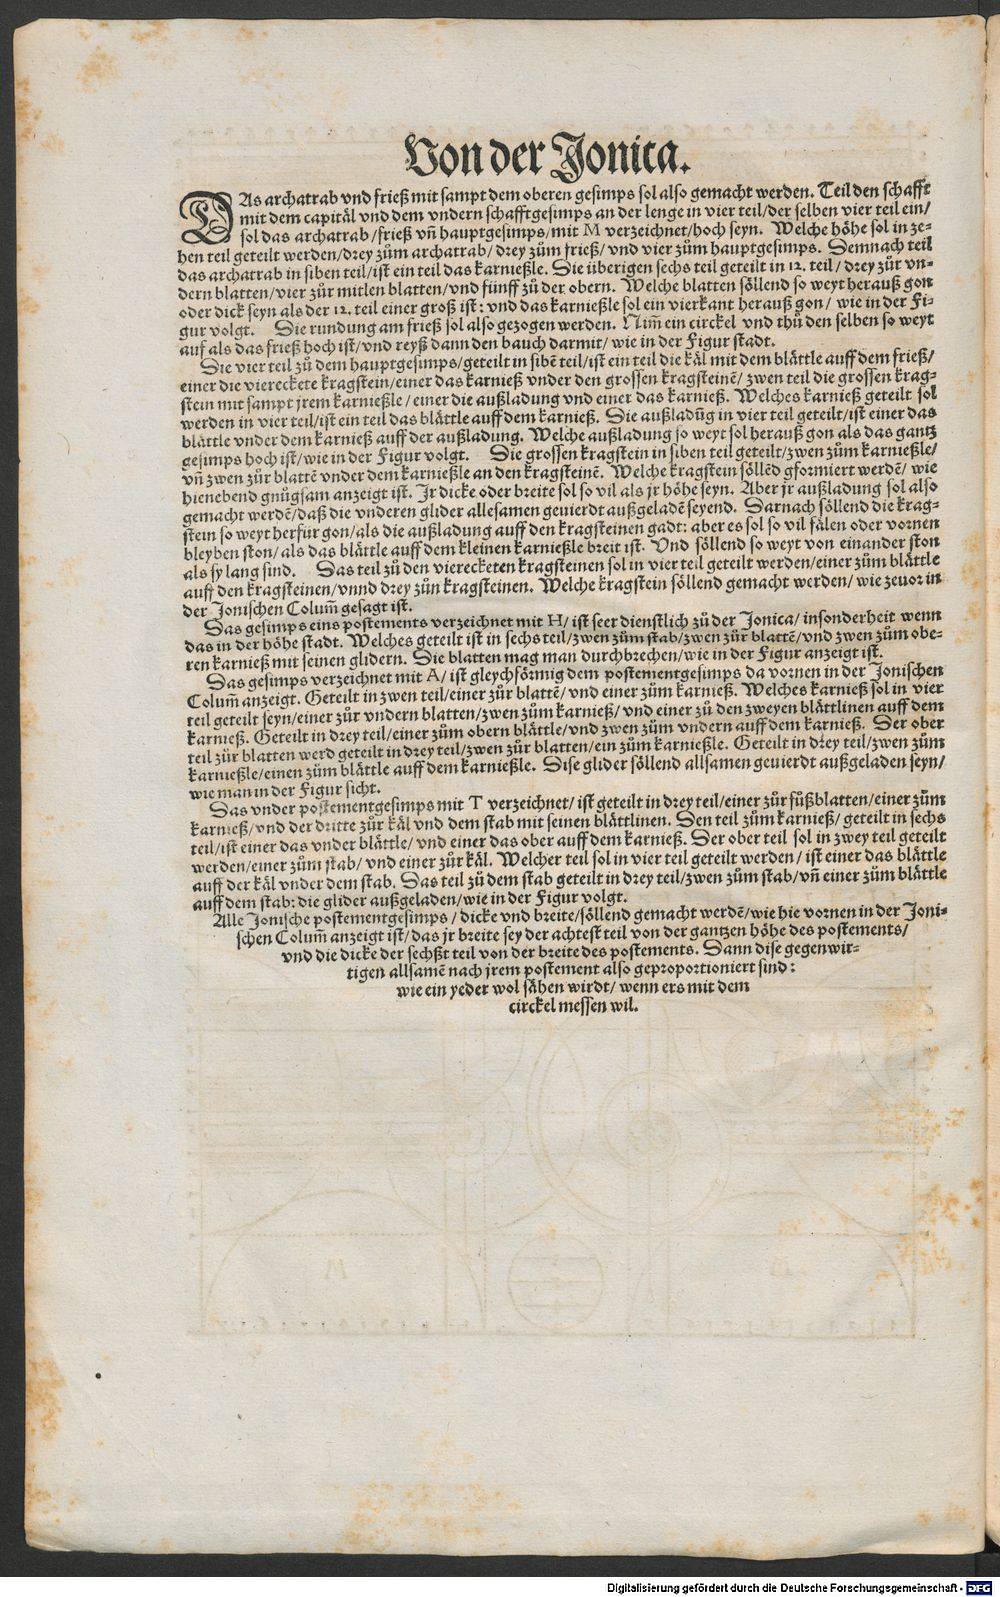 Von der Jonica.
DAs archatrab vnd frieß mit sampt dem oberen gesimps sol also gemacht werden. Teil den schafft
mit dem capitäl vnd dem vndern schafftgesimps an der lenge in vier teil/der selben vier teil ein/
sol das archatrab/frieß vñ hauptgesimps/mit M verzeichnet/hoch seyn. Welche höhe sol in ze-
hen teil geteilt werden/drey zům archatrab/drey zům frieß/vnd vier zům hauptgesimps. Demnach teil
das archatrab in siben teil/ist ein teil das karnießle. Die überigen sechs teil geteilt in 12. teil/drey zůr vn-
dern blatten/vier zůr mitlen blatten/vnd fünff zů der obern. Welche blatten söllend so weyt herauß gon
oder dick seyn als der 12. teil einer groß ist: vnd das karnießle sol ein vierkant herauß gon/ wie in der Fi-
gur volgt. Die rundung am frieß sol also gezogen werden. Nim̃ ein circkel vnd thů den selben so weyt
auf als das frieß hoch ist/vnd reyß dann den bauch darmit/ wie in der Figur stadt.
Die vier teil zů dem hauptgesimps/geteilt in sibẽ teil/ist ein teil die käl mit dem blättle auff dem frieß/
einer die viereckete kragstein/einer das karnieß vnder den grossen kragsteinẽ/ zwen teil die grossen krag-
stein mit sampt jrem karnießle/einer die außladung vnd einer das karnieß. Welches karnieß geteilt sol
werden in vier teil/ist ein teil das blättle auff dem karnieß. Die außladũg in vier teil geteilt/ist einer das
blättle vnder dem karnieß auff der außladung. Welche außladung so weyt sol herauß gon als das gantz
gesimps hoch ist/wie in der Figur volgt. Die grossen kragstein in siben teil geteilt/zwen zům karnießle/
vñ zwen zůr blattẽ vnder dem karnießle an den kragsteinẽ. Welche kragstein söllẽd gformiert werdẽ/ wie
hienebend gnůgsam anzeigt ist. Jr dicke oder breite sol so vil als jr höhe seyn. Aber jr außladung sol also
gemacht werdẽ/daß die vnderen glider allesamen geuierdt außgeladẽ seyend. Darnach söllend die krag-
stein so weyt herfür gon/als die außladung auff den kragsteinen gadt: aber es sol so vil fälen oder vornen
bleyben ston/als das blättle auff dem kleinen karnießle breit ist. Vnd söllend so weyt von einander ston
als sy lang sind. Das teil zů den viereckeren kragsteinen sol in vier teil geteilt werden/einer zům blättle
auff den kragsteinen/vnnd drey zůn kragsteinen. Welche kragstein söllend gemacht werden/ wie zeuor in
der Jonischen Colum̃ gesagt ist.
Das gesimps eins postements verzeichnet mit H/ ist seer dienstlich zů der Jonica/ insonderheit wenn
das in der höhe stadt. Welches geteilt ist in sechs teil/zwen zům stab/zwen zůr blattẽ/vnd zwen zům obe-
ren karnieß mit seinen glidern. Die blatten mag man durchbrechen/wie in der Figur anzeigt ist.
Das gesimps verzeichnet mit A/ ist gleychförmig dem postementgesimps da vornen in der Jonischen
Colum̃ anzeigt. Geteilt in zwen teil/einer zůr blattẽ/ vnd einer zům karnieß. Welches karnieß sol in vier
teil geteilt seyn/einer zůr vndern blatten/zwen zům karnieß/ vnd einer zů den zweyen blättlinen auff dem
karnieß. Geteilt in drey teil/einer zům obern blättle/vnd zwen zům vndern auff dem karnieß. Der ober
teil zůr blatten werd geteilt in drey teil/zwen zůr blatten/ein zům karnießle. Geteilt in drey teil/zwen zům
karnießle/einen zům blättle auff dem karnießle. Dise glider söllend allsamen geuierdt außgeladen seyn/
wie man in der Figur sicht.
Das vnder postementgesimps mit T verzeichnet/ ist geteilt in drey teil/einer zůr fůßblatten/einer zům
karnieß/vnd der dritte zůr käl vnd dem stab mit seinen blättlinen. Den teil zům karnieß/ geteilt in sechs
teil/ist einer das vnder blättle/ vnd einer das ober auff dem karnieß. Der ober teil sol in zwey teil geteilt
werden/einer zům stab/ vnd einer zůr käl. Welcher teil sol in vier teil geteilt werden/ ist einer das blättle
auff der käl vnder dem stab. Das teil zů dem stab geteilt in drey teil/zwen zům stab/vñ einer zům blättle
auff dem stab: die glider außgeladen/wie in der Figur volgt.
Alle Jonische postementgesimps/ dicke vnd breite/söllend gemacht werdẽ/wie hie vornen in der Joni-
schen Colum̃ anzeigt ist/das jr breite sey der achtest teil von der gantzen höhe des postements/
vnd die dicke der sechßt teil von der breite des postements. Dann dise gegenwir-
tigen allsamẽ nach jrem postement also geproportioniert sind:
wie ein yeder wol sähen wirdt/ wenn ers mit dem
circkel messen wil.
Digitalisierung gefördert durch die Deutsche Forschungsgemeinschaft - DFG